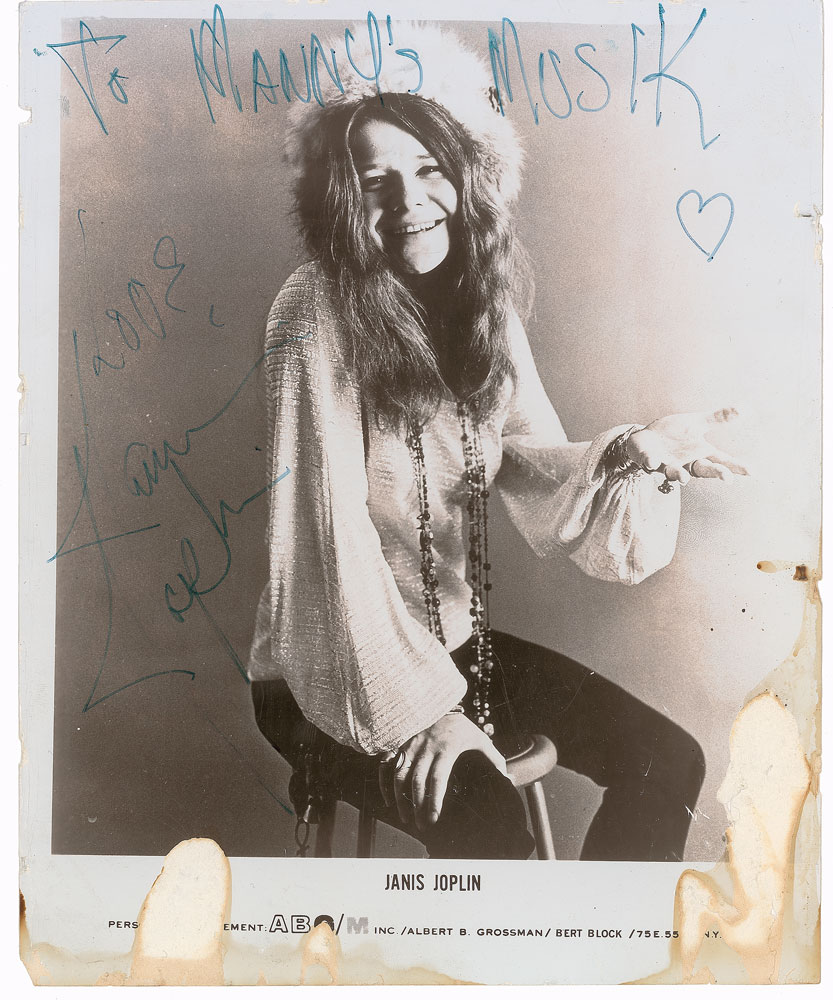 To MANNY's MUSIK
LOVE,
Janis
Joplin
JANIS JOPLIN
PERS EMENT: ABG/M INC./ALBERT B. GROSSMAN/ BERT BLOCK /75 E. 55 N.Y.